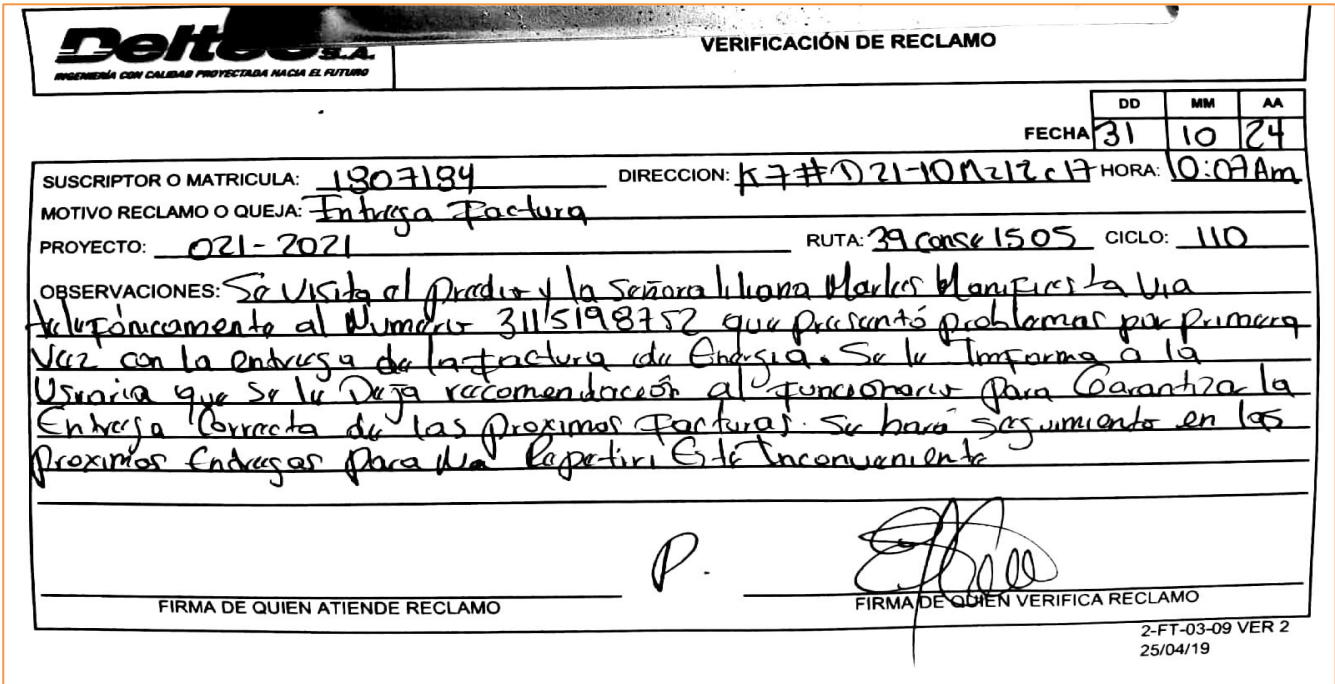 Deltec S.A.
INGENIERÍA CON CALIDAD PROYECTADA HACIA EL FUTURO
VERIFICACIÓN DE RECLAMO
DD MM AA
FECHA 31 10 24
SUSCRIPTOR O MATRICULA: 1807184 DIRECCION: K7#D21-10Mz12c17 HORA: 10:07Am
MOTIVO RECLAMO O QUEJA: Entrega Factura
PROYECTO: 021-2021 RUTA: 39 conse 1505 CICLO: 110
OBSERVACIONES: Se Visita el predio y la Señora liliana Manifiesta Via
telefónicamente al Numero 3115198752 que presentó problemas por primera
Vez con la entrega de la factura de Energia. Se le Imforma a la
Usuaria que Se le Deja recomendaceón al funcionario para Garantiza la
Entrega Correcta de las proximas facturas. Se hará seguimiento en las
proximas Entregas para No Repetir Este Inconveniente
P.
FIRMA DE QUIEN ATIENDE RECLAMO FIRMA DE QUIEN VERIFICA RECLAMO
2-FT-03-09 VER 2
25/04/19